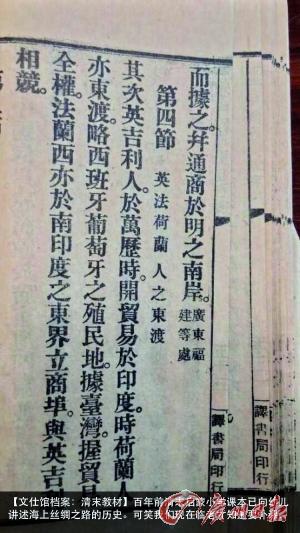 而據之。幷通商於明之南岸。廣東福
建等處
第四節 英法荷蘭人之東渡
其次英吉利人。於萬歷時。開貿易於印度。時荷蘭人
亦東渡。略西班牙葡萄牙之殖民地。據臺灣。握貿
全權。法蘭西亦於南印度之東界立商埠。與英吉
相競。
譯書局印行
譯書局印行
【文仕馆档案：清末教材】百年前清末启蒙小学课本已向幼儿
讲述海上丝绸之路的历史。可笑我们现在临老才知还要补课